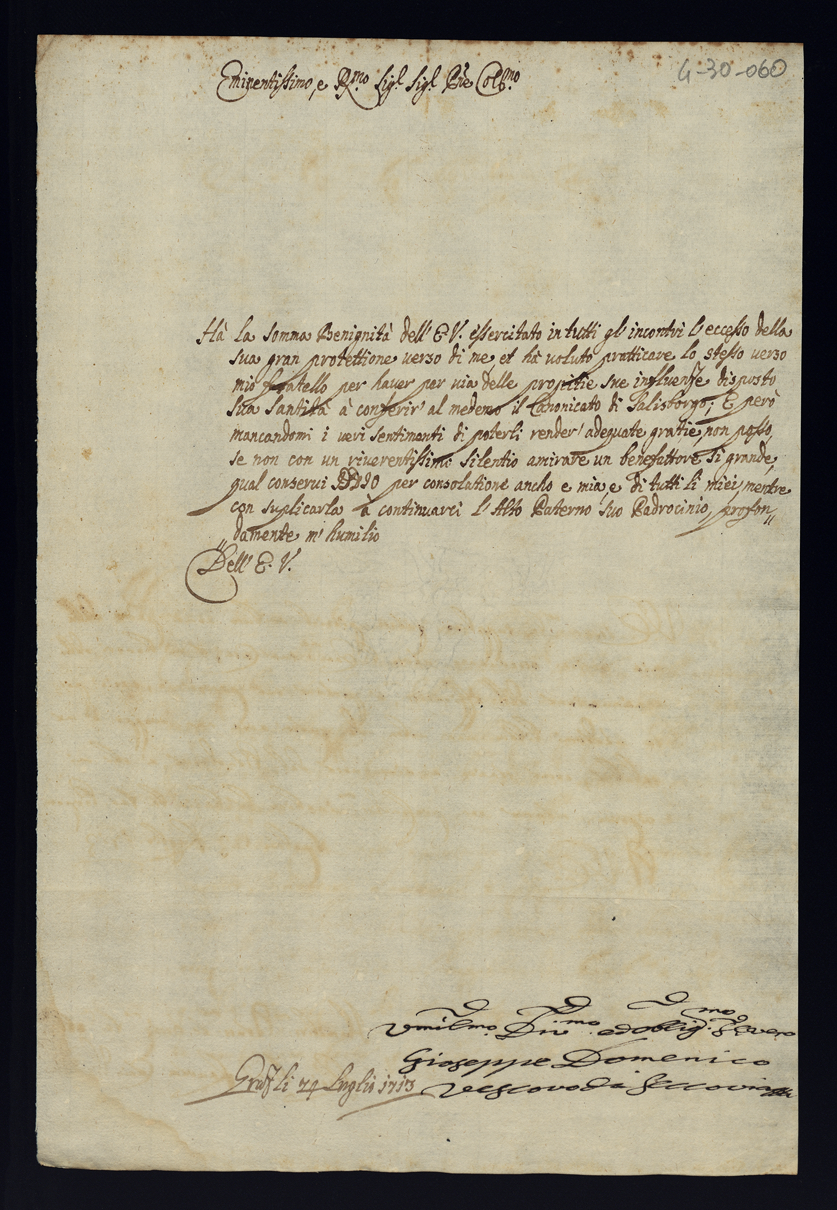 4-30-060
Eminentissimo, e R.mo Sig.r Sig.r Pñe Col.mo
Hà la somma Benignità dell' E. V. essercitato in tutti gl' incontri l' eccesso della
sua gran protettione verso di me, et hà voluto pratticare lo stesso verso
mio fratello per haver per via delle propitie sue influenze disposto
Sua Santità à conferir' al medemo il Canonicato di Salisborgo; E però
mancandomi i veri sentimenti di poterli render' adeguate gratie, non posso,
se non con un riverentissimo silentio amirare un benefattore si grande,
qual conservi IDDIO per consolatione ancho e mia, e di tutti li miei, mentre
con suplicarla à continuarci l' Alto Paterno suo Padrocinio, profon„
„damente m' humilio
Dell' E. V.
Vmilmo. Div.mo ed obblig.mo Servo
Gioseppe Domenico
Vescovo di Seccovia
Graz li 24 Luglio 1713